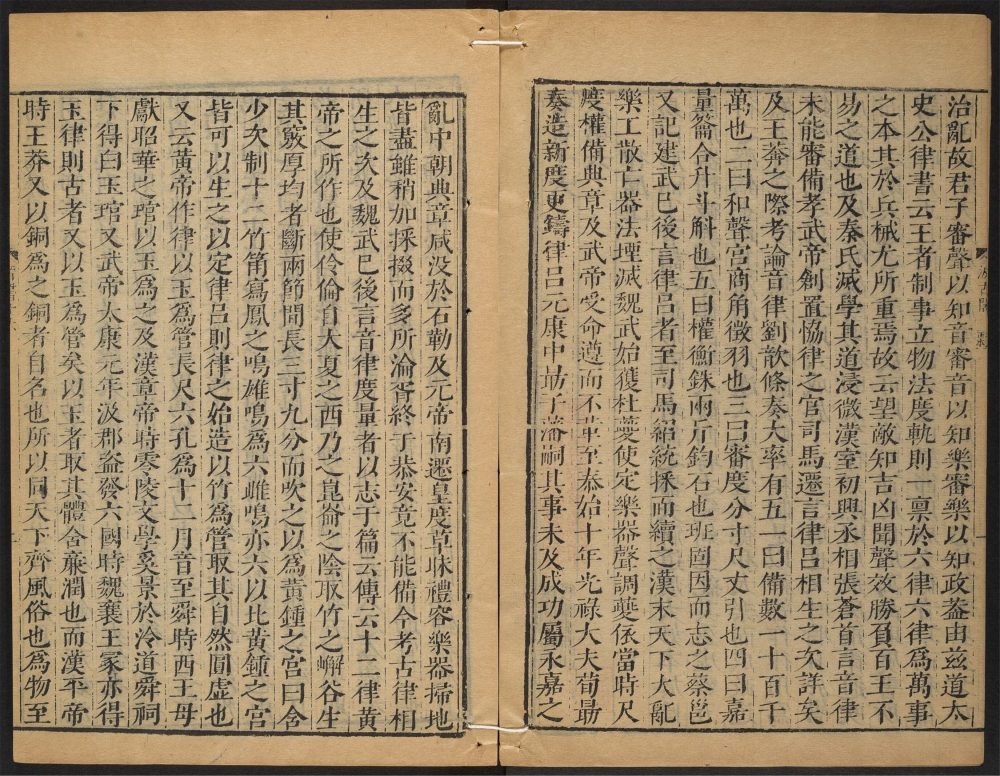 治亂故君子審聲以知音審音以知樂審樂以知政蓋由茲道太
史公律書云王者制事立物法度軌則一稟於六律六律爲萬事
之本其於兵械尤所重焉故云望敵知吉凶聞聲效勝負百王不
易之道也及秦氏滅學其道浸微漢室初興丞相張蒼首言音律
未能審備孝武帝創置協律之官司馬遷言律呂相生之次詳矣
及王莽之際考論音律劉歆條奏大率有五一曰備數一十百千
萬也二曰和聲宮商角徵羽也三曰審度分寸尺丈引也四曰嘉
量籥合升斗斛也五曰權衡銖兩斤鈞石也班固因而志之蔡邕
又記建武巳後言律呂者至司馬紹統採而續之漢末天下大亂
樂工散亡器法堙滅魏武始獲杜夔使定樂器聲調夔依當時尺
度權備典章及武帝受命遵而不革至泰始十年光祿大夫荀勗
奏造新度更鑄律呂元康中勗子藩嗣其事未及成功屬永嘉之
亂中朝典章咸沒於石勒及元帝南遷皇度草昧禮容樂器掃地
皆盡雖稍加採掇而多所淪胥終于恭安竟不能備今考古律相
生之次及魏武巳後言音律度量者以志于篇云傳云十二律黃
帝之所作也使伶倫自大夏之西乃之崑崙之陰取竹之嶰谷生
其竅厚均者斷兩節間長三寸九分而吹之以爲黃鍾之宮曰含
少次制十二竹筩寫鳳之鳴雄鳴爲六雌鳴亦六以比黃鍾之宮
皆可以生之以定律呂則律之始造以竹爲管取其自然圓虛也
又云黃帝作律以玉爲管長尺六孔爲十二月音至舜時西王母
獻昭華之琯以玉爲之及漢章帝時零陵文學奚景於泠道舜祠
下得白玉琯又武帝太康元年汲郡盜發六國時魏襄王冢亦得
玉律則古者又以玉爲管矣以玉者取其體含廉潤也而漢平帝
時王莽又以銅爲之銅者自名也所以同天下齊風俗也爲物至